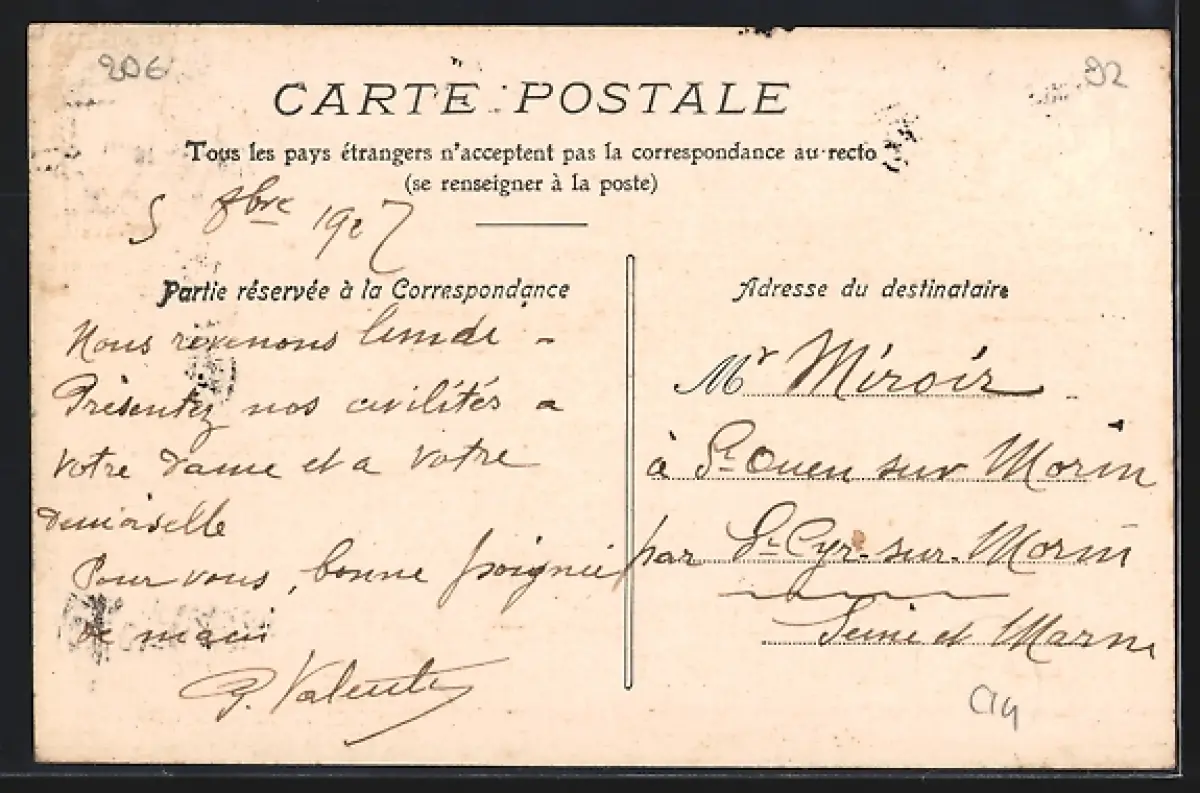 20€
92
CARTE POSTALE
Tous les pays étrangers n'acceptent pas la correspondance au recto
(se renseigner à la poste)
5 1907
Partie réservée à la Correspondance
Nous revenons lundi -
Présentez nos civilités a
votre dame et a votre
demoiselle
Pour vous, bonne poignée
de main
Adresse du destinataire
Mr Miroir
à St Ouen sur Morin
par St Cyr-sur-Morin
Seine et Marne